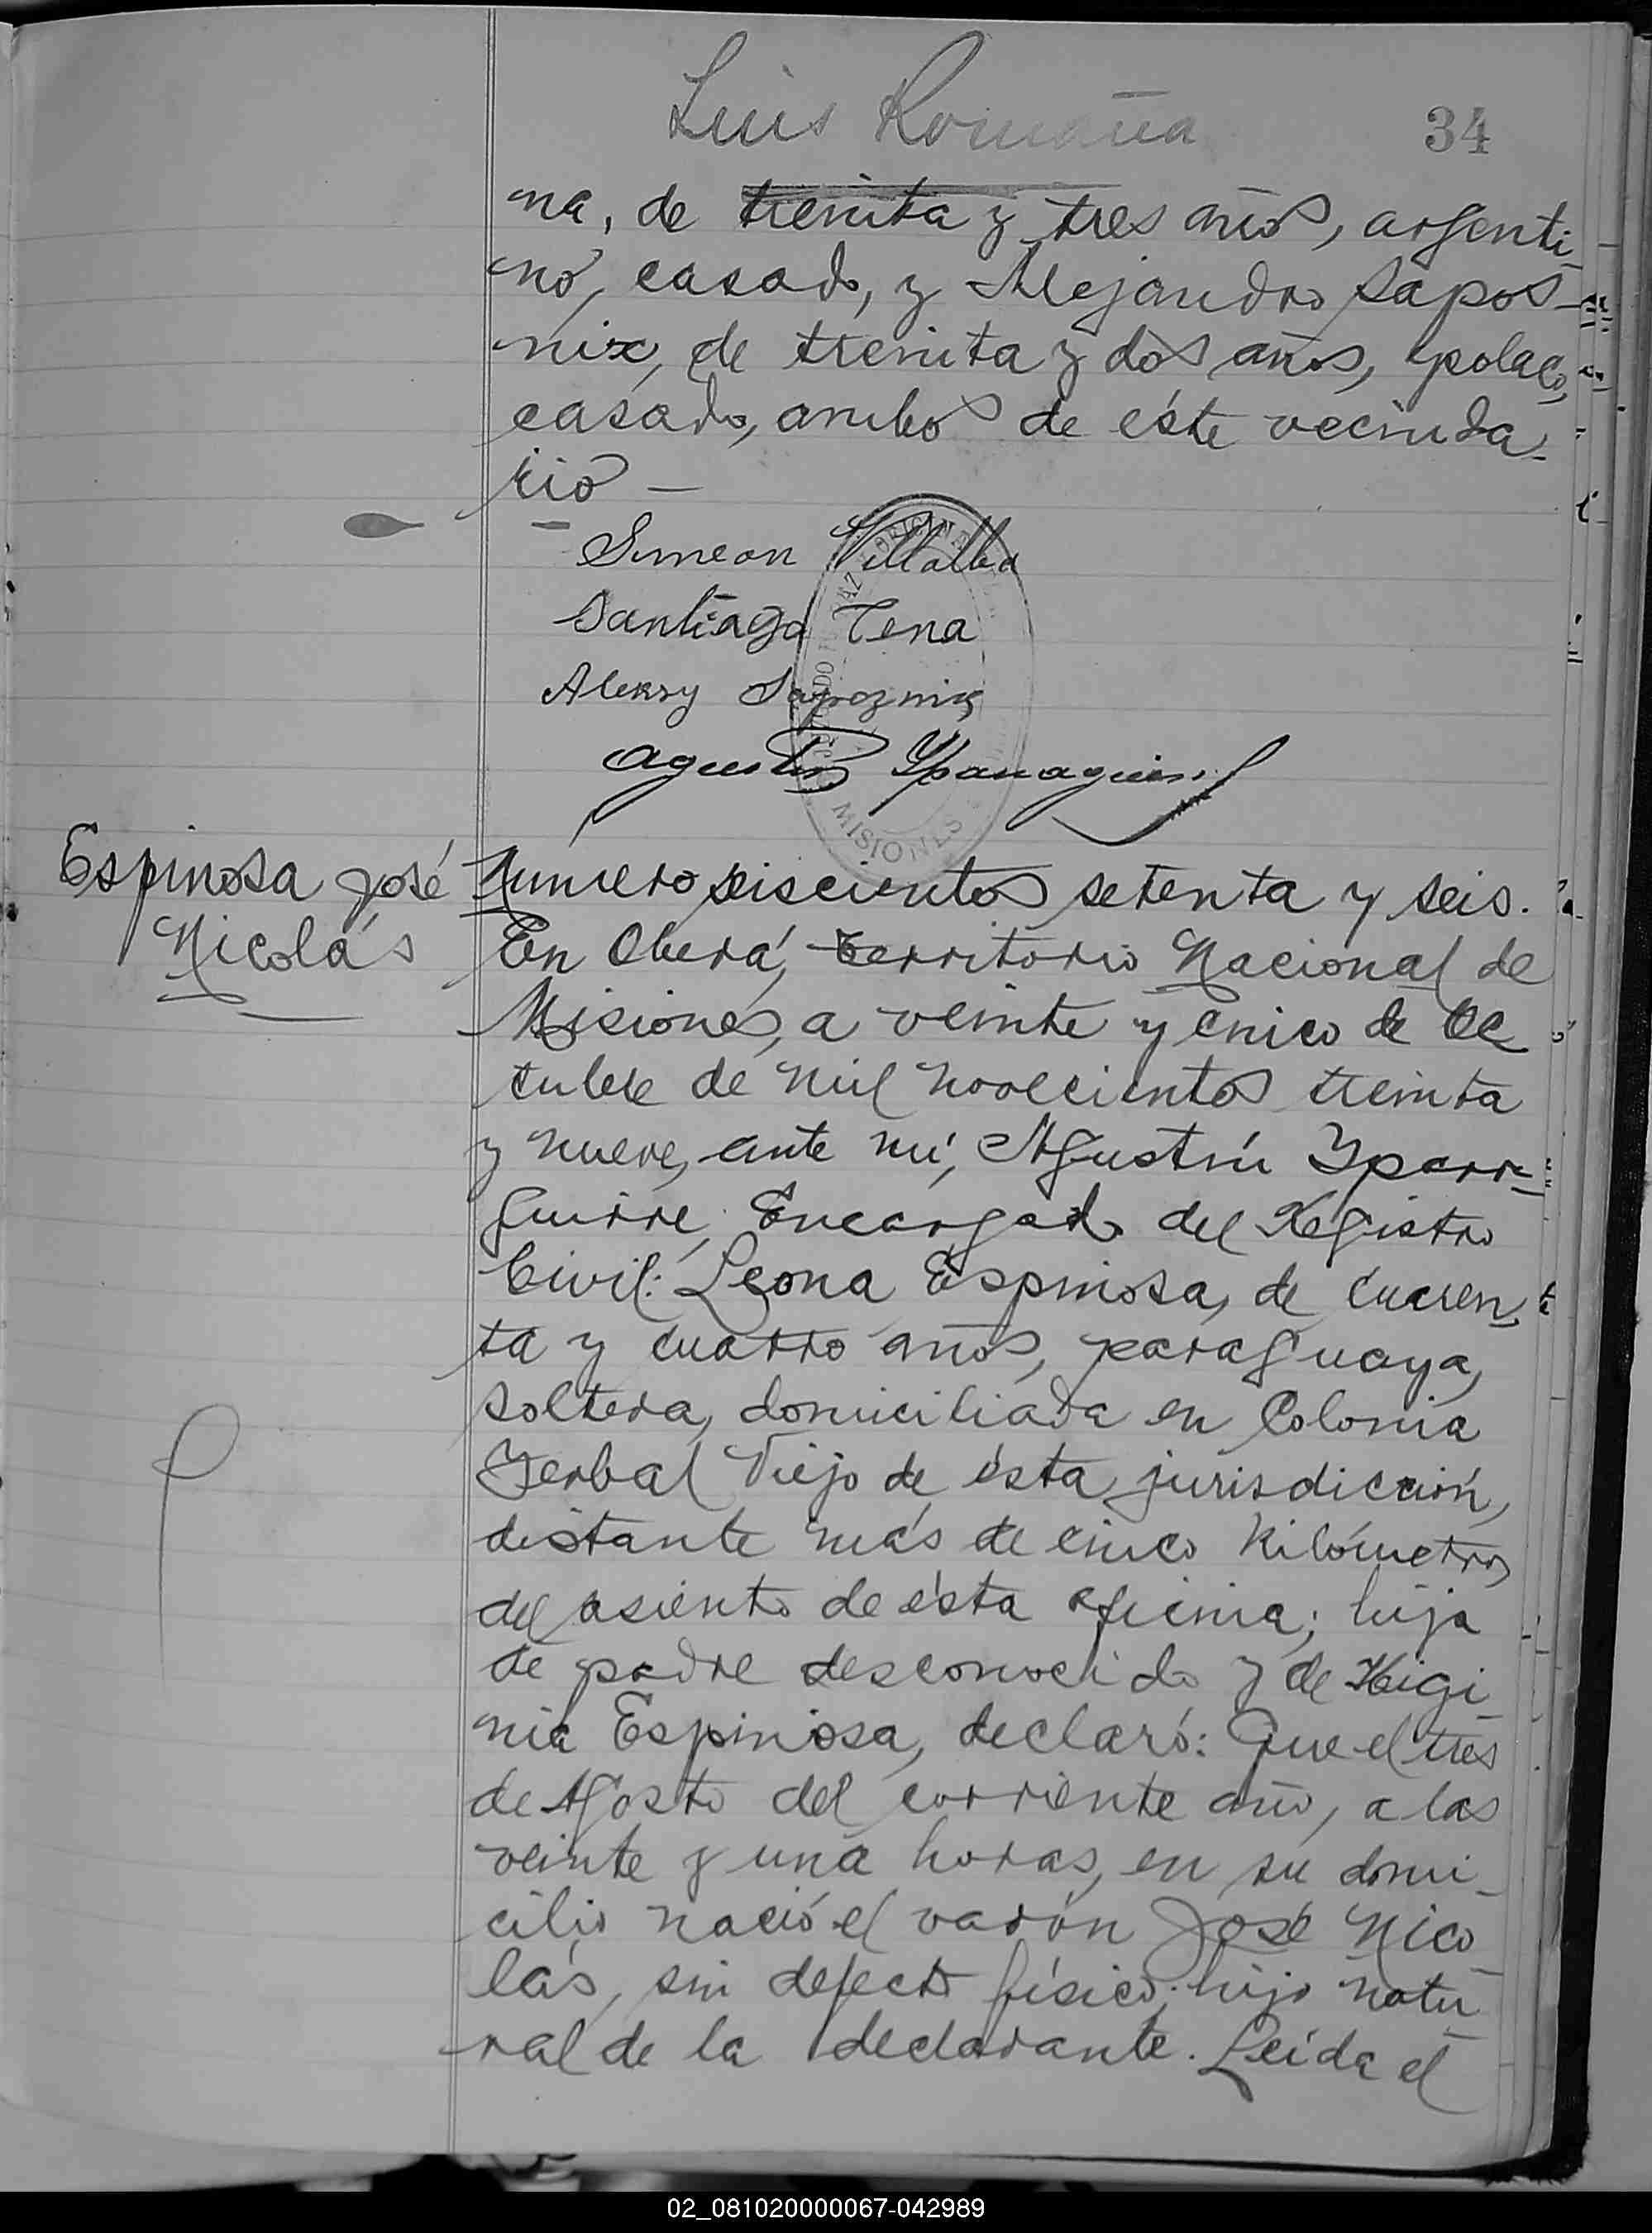 Luis Romaña
34
na, de treinta y tres años, argenti-
no, casado, y Alejandro Sapos-
nix, de treinta y dos años, polaco,
casado, ambos de éste vecinda-
rio —
Simeon Villalba
Santiago Tena
Aleksy Sapoznik
Agustin Yparraguirre
MISIONES
Espinosa José
Nicolás
Número seiscientos setenta y seis.
En Oberá, Territorio Nacional de
Misiones, a veinte y cinco de Oc
tubre de mil novecientos treinta
y nueve, ante mí, Agustín Yparra-
guirre, Encargado del Registro
Civil: Leona Espinosa, de cuaren-
ta y cuatro años, paraguaya,
soltera, domiciliada en Colonia
Yerbal Viejo de ésta jurisdicción,
distante más de cinco Kilómetros
del asiento de ésta oficina; hija
de padre desconocido y de Higi-
nia Espinosa, declaró: Que el tres
de Agosto del corriente año, a las
veinte y una horas, en su domi-
cilio nació el varón José Nico-
lás, sin defecto físico; hijo natu-
ral de la declarante. Leída el
02_081020000067-042989